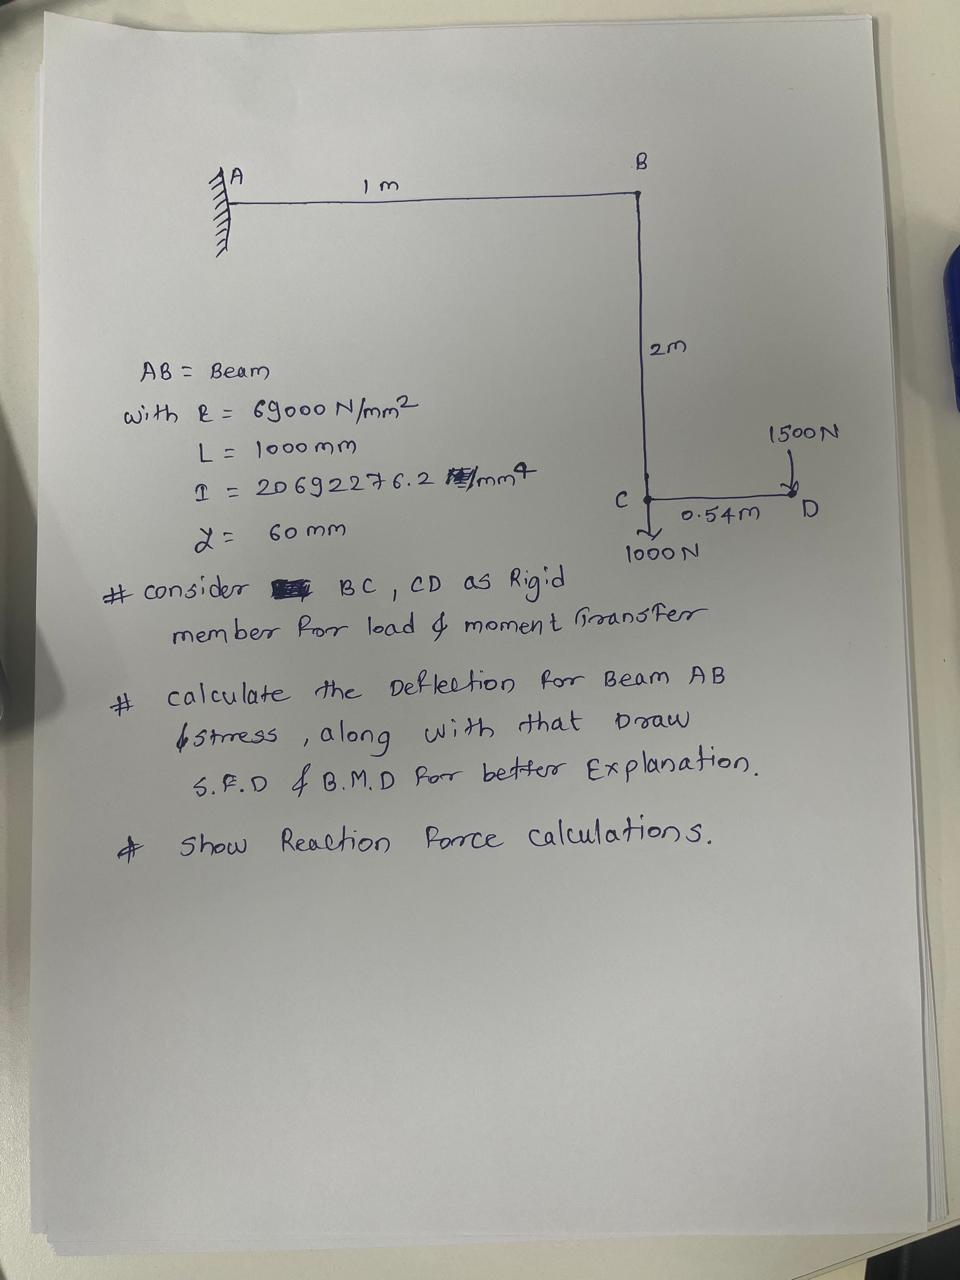 A
1 m
B
2m
AB = Beam
with E = 69000 N/mm2
L = 1000 mm
I = 20692276.2 /mm4
y = 60 mm
1500N
C
0.54m
D
1000N
# consider BC, CD as Rigid
member for load & moment Transfer
# calculate the Deflection for Beam AB
& stress, along with that Draw
S.F.D & B.M.D for better Explanation.
# Show Reaction Force calculations.